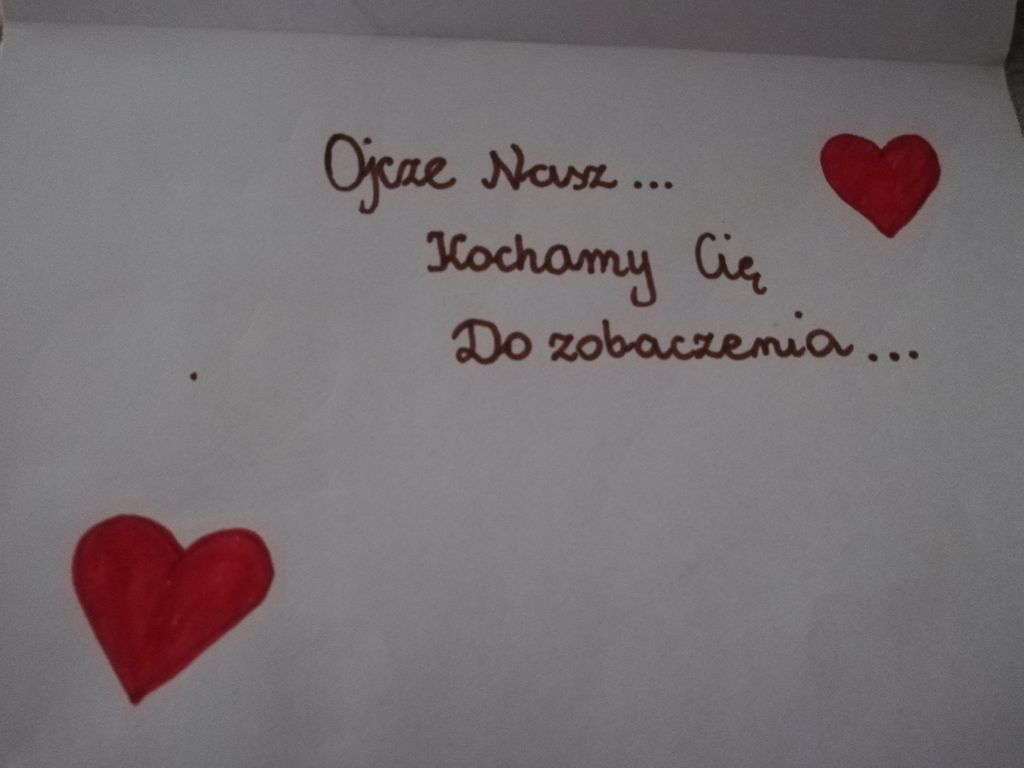 Ojcze Nasz...
Kochamy Cię
Do zobaczenia...